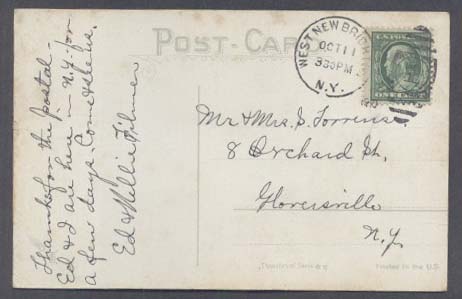 POST-CARD
WEST NEW BRIGHTON
OCT 11
330PM
N.Y.
U.S. POSTAGE
Thanks for the postal -
Ed & I are here in N.Y. for
a few days. Come & see us.
Ed & Millie Filmer
Mr & Mrs. S. Torrens.
8 Orchard St.
Gloversville
N.Y.
Printed in the U.S.